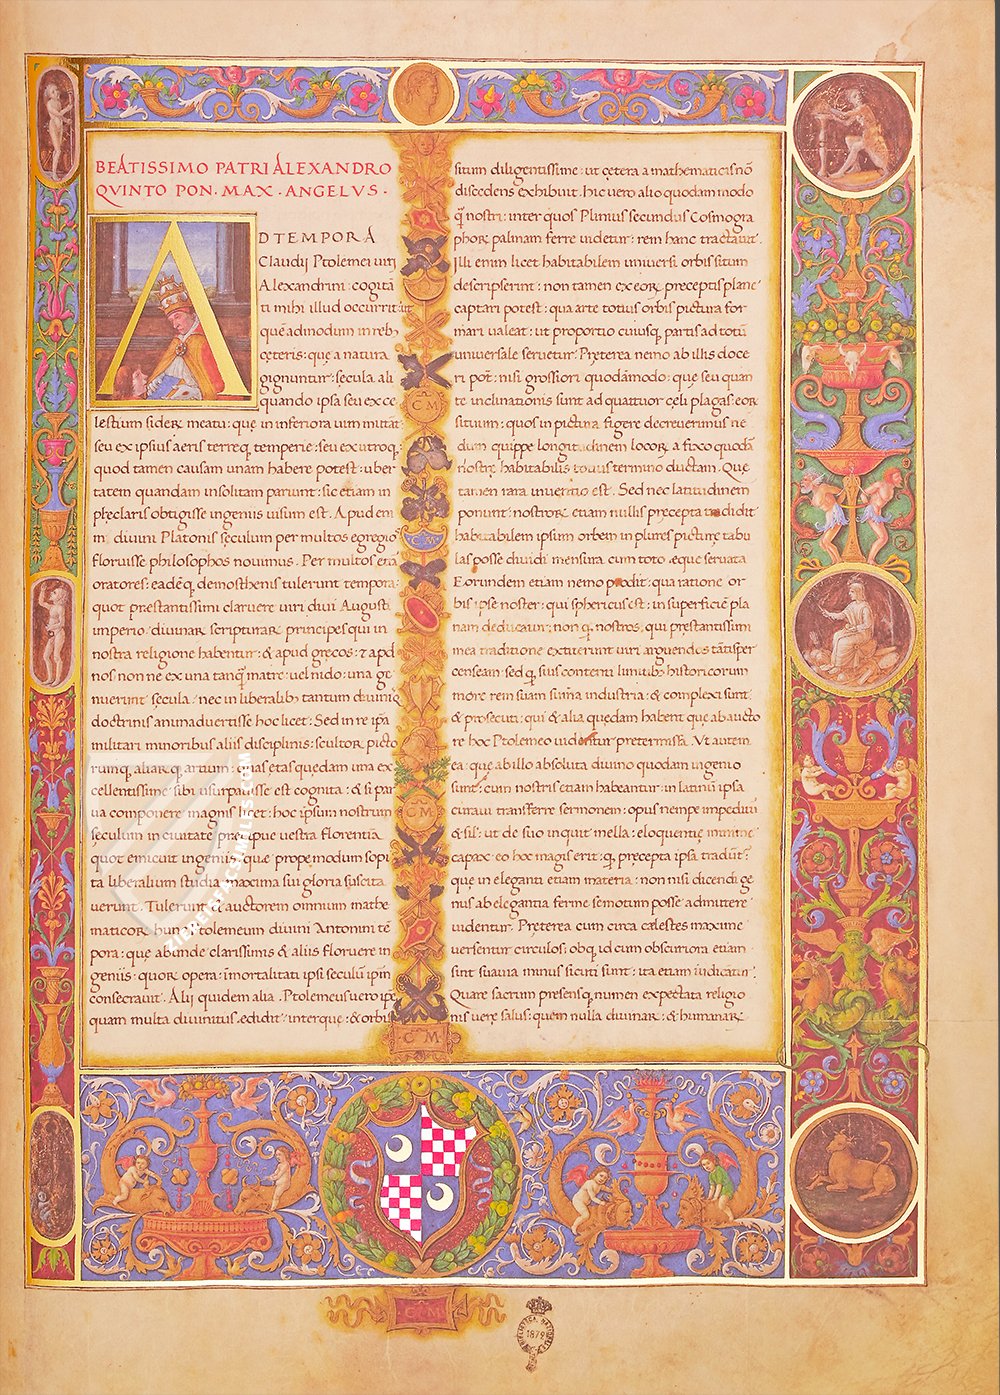 BEATISSIMO PATRI ALEXANDRO
QVINTO PON. MAX. ANGELVS.
AD TEMPORA
Claudij Ptolemei uiri
Alexandrini: cogitā
ti mihi illud occurrit: ut
quēadmodum in reb;
cęteris: quę a natura
gignuntur: secula ali
quando ipsa seu ex cę
lestium siderꝝ meatu: quę in inferiora uim mutāt
seu ex ipsius aeris terręq; temperie: seu ex utroq;
quod tamen causam unam habere potest: uber
tatem quandam insolitam pariunt: sic etiam in
pręclaris obtigisse ingeniis uisum est. Apud em̄
in diuini Platonis sęculum per multos egregio
floruisse philosophos nouimus. Per multos etiā
oratores: eadēq; demosthenis tulerunt tempora:
quot pręstantissimi claruere uiri diui Augusti
imperio: diuinaꝝ scripturaꝝ principes qui in
nostra religione habentur: & apud gręcos: & apd̄
nos non ne ex una tanq̄ matre: uel nido: una ge
nuerint sęcula: nec in liberalib; tantum diuinisq;
doctrinis animaduertisse hoc licet: Sed in re ipā
militari minoribus aliis disciplinis: scultoꝝ picto
rumq; aliarq; artium: quas ętas quędam una ex
cellentissime sibi usurpauisse est cognita: & si par
ua componere magnis licet: hoc ipsum nostrum
sęculum in ciuitate pręcipue uestra florentia
quot emicuit ingeniis: quę prope modum sopi
ta liberalium studia maxima sui gloria suscita
uerunt. Tulerunt & auctorem omnium mathe
maticoꝝ hunc Ptolemeum diuini Antonini tē
pora: quę abunde clarissimis & aliis floruere in
geniis: quoꝝ opera: īmortalitati ipsi seculū ipm̄
consecrauit. Alij quidem alia. Ptolemeus uero ipe
quam multa diuinitus ędidit: interque: & orbis
situm diligentissime: ut cętera a mathematicis nō
discedens exhibuit. hic uero alio quodam modo
q̄ nostri: inter quos Plinius secundus Cosmogra
phoꝝ palmam ferre uidetur: rem hanc tractauit.
Illi enim licet habitabilem uniuersi orbis situm
descripserint: non tamen ex eoꝝ pręceptis plane
captari potest: qua arte totius orbis pictura for
mari ualeat: ut proportio cuiusq; partis ad totū
uniuersale seruetur. Pręterea nemo ab illis doce
ri pōt: nisi grossiori quodāmodo: quę seu quan
te inclinationis sunt ad quattuor cęli plagas: eoꝝ
situum: quos in pictura figere decreuerimus ne
dum quippe longitudinem locoꝝ a fixo quodā
nostrę habitabilis totius termino ductam. Quę
tamen rara inuentio est. Sed nec latitudinem
ponunt: nostroꝝ etiam nullis pręcepta tradidit
habitabilem ipsum orbem in plures picturę tabu
las posse diuidi mensura cum toto ęque seruata
Eorundem etiam nemo prodit: qua ratione or
bis ipse noster: qui sphericus est: in superficiē pla
nam deducatur: non q̄ nostros, qui pręstantissimi
mea traditione extiterunt uiri arguendos tātisper
censeam: sed q̄ suis contenti limitib; historicorum
more rem suam sūma industria: & complexi sunt
& prosecuti: qui & alia quędam habent quę ab aucto
re hoc Ptolemeo uidentur pretermissa. Vt autem
ea: quę ab illo absoluta diuino quodam ingenio
sunt: cum nostris etiam habeantur: in latinū ipsa
curaui transferre sermonem: opus nempe īpeditū
& sil': ut de suo inquit mella: eloquentię minime
capax: eo hoc magis erit: q̄ pręcepta ipsa tradūt':
quę in eleganti etiam materia: non nisi dicendi ge
nus ab elegantia ferme semotum posse admittere
uidentur. Preterea cum circa cęlestes maxime
uersentur circulos: obq; id cum obscuriora etiam
sint suauia minus sicuti sunt: ita etiam iudicātur.
Quare sacrum presensq; numen expectata religio
nis uerę salus: quem nulla diuinaꝝ: & humanaꝝ
C M
C M
C M
C M
C M
BIBLIOTECA NAZIONALE
1872
ZIEREIS FACSIMILES.COM